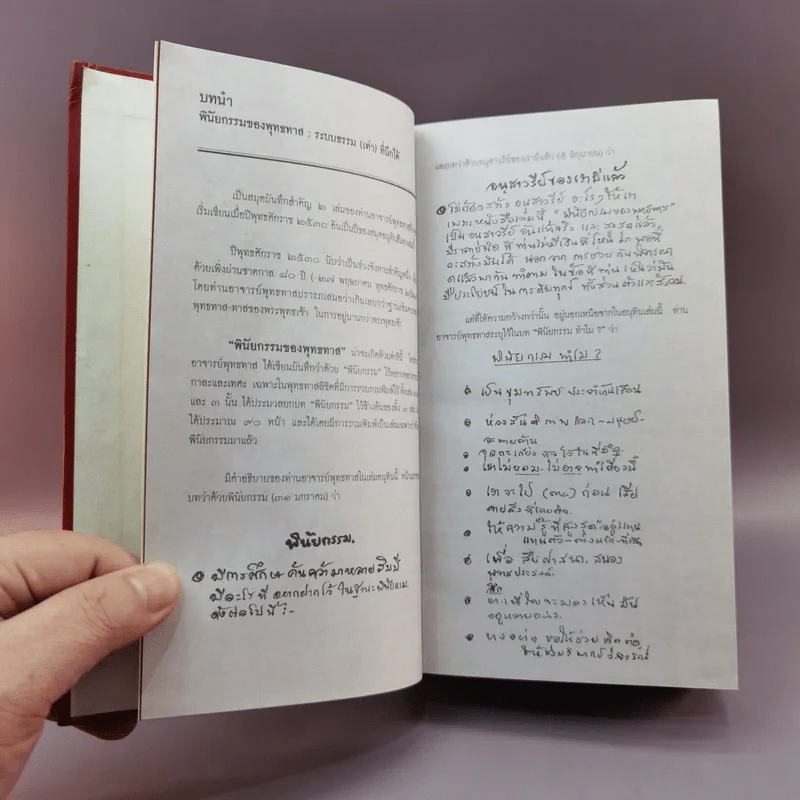 บทนำ
พินัยกรรมของพุทธทาส : ระบบธรรม (เท่า) ที่นึกได้
เป็นสมุดบันทึกสำคัญ ๒ เล่มของท่านอาจารย์พุทธทาส
เริ่มเขียนเมื่อปีพุทธศักราช ๒๕๓๐ อันเป็นปีของสมุดอนุทิน
ปีพุทธศักราช ๒๕๓๐ นับว่าเป็นช่วงจังหวะสำคัญ
ด้วยเพิ่งผ่านชาตกาล ๘๐ ปี (๒๗ พฤษภาคม พุทธศักราช
โดยท่านอาจารย์พุทธทาสปรารภเสมอว่าเกินเลยกว่า
พุทธทาส-ทาสของพระพุทธเจ้า ในการอยู่นานกว่าพระพุทธเจ้า
"พินัยกรรมของพุทธทาส" น่าจะเกิดด้วยคำรินี้
อาจารย์พุทธทาส ได้เขียนบันทึกว่าด้วย "พินัยกรรม" ไว้
กาละและเทศะ เฉพาะในพุทธทาสลิขิตที่มีการรวบรวมพิมพ์ไว้
และ ๓ นั้น ได้ประมวลยกบท "พินัยกรรม" ไว้ข้างต้นของทั้ง ๓
ได้ประมาณ ๙๐ หน้า และได้เคยมีการรวมพิมพ์เป็นเล่มเฉพาะ
พินัยกรรมมาแล้ว
มีคำอธิบายของท่านอาจารย์พุทธทาสในเล่มอนุทินนี้
บทว่าด้วยพินัยกรรม (๓๑ มกราคม) ว่า
พินัยกรรม.
มีการศึกษาค้นคว้ามาหลายสิบปี
มีอะไรที่ อยากฝากไว้ ในฐานะพินัยกรรม
ดังต่อไปนี้ :-
และบทว่าด้วยอนุสาวรีย์ของเรามีแล้ว (๕ มิถุนายน) ว่า
อนุสาวรีย์ของเรามีแล้ว
ไม่ต้องสร้าง อนุสาวรีย์ อะไรๆ ให้เรา
เพราะหนังสือเล่มนี้ "พินัยกรรมของพุทธทาส"
เป็นอนุสาวรีย์ อันแท้จริง และ
มีราคาชนิด ที่ท่านไม่มีเงินที่ไหน มา พอที่
จะสร้างมันได้ นอกจาก การช่วยกันพิจารณา
ดูแล้วพากันทำตาม ในข้อที่ท่านเห็นว่ามัน
มีประโยชน์ ในการดับทุกข์ ทั้งส่วนตัวและสังคม.
แต่ที่ให้ความกว้างกว่านั้น อยู่นอกเหนือจากในอนุทินเล่มนี้ ท่าน
อาจารย์พุทธทาสระบุไว้ในบท "พินัยกรรม ทำไม ?" ว่า
พินัยกรรม ทำไม ?
เป็นขุมทรัพย์ ประจำบ้านเรือน
ห่วงสันติภาพ โลก-มนุษย์-
เราไม่ยอม-ไม่อาจ
เราจะไป (ตาย) ก่อน
ให้ความรู้ที่สูงสุด อยู่แทน
เพื่อ สืบศาสนา, สนอง
พุทธประสงค์.
บางอย่าง ขอให้ช่วย คิดต่อ
ให้ช่วยวิพากษ์วิจารณ์